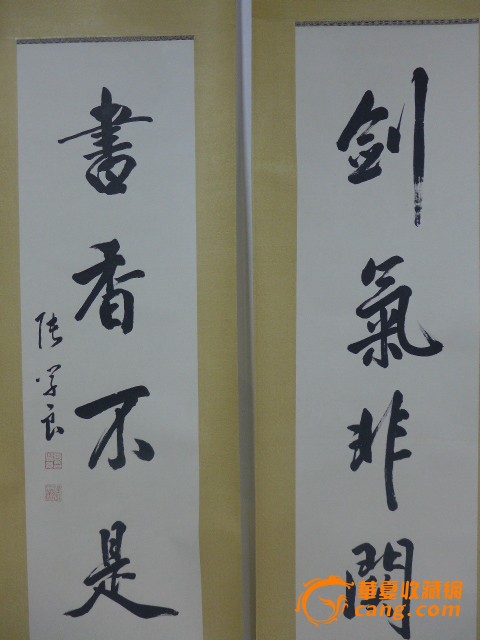 劍氣非關
書香不是
張學良
華夏收藏網
cang.com